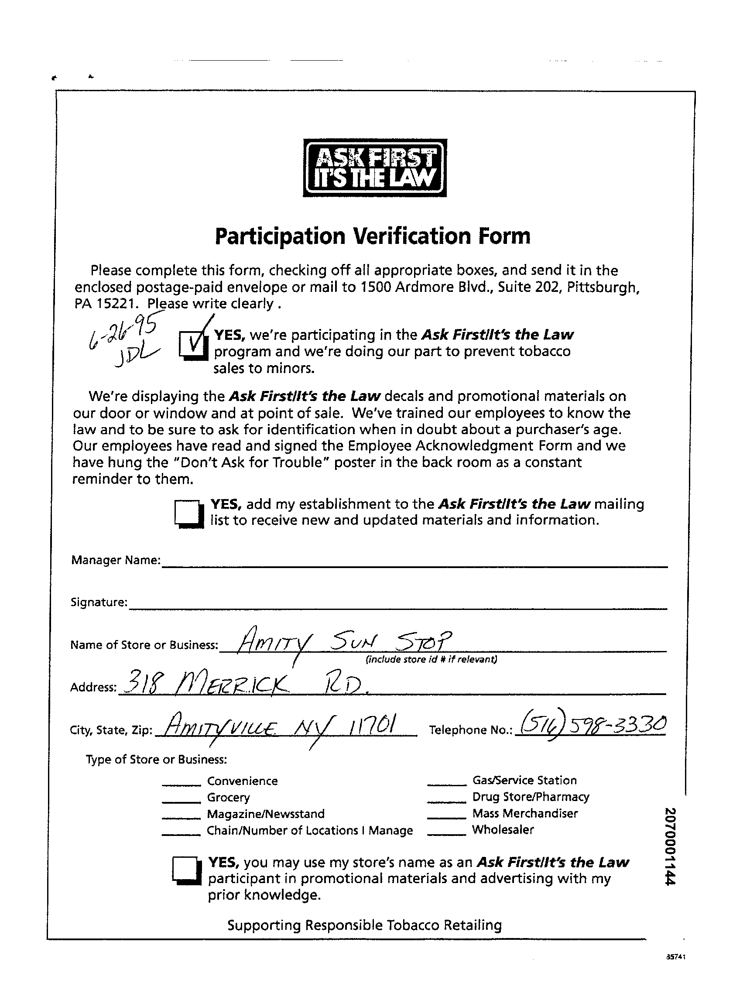 ASK FIRST
IT'S THE LAW
Participation Verification Form
Please complete this form, checking off all appropriate boxes, and send it in the
enclosed postage-paid envelope or mail to 1500 Ardmore Blvd., Suite 202, Pittsburgh,
PA 15221. Please write clearly .
6-26-95
JDL
YES, we're participating in the Ask First/It's the Law
program and we're doing our part to prevent tobacco
sales to minors.
We're displaying the Ask First/It's the Law decals and promotional materials on
our door or window and at point of sale. We've trained our employees to know the
law and to be sure to ask for identification when in doubt about a purchaser's age.
Our employees have read and signed the Employee Acknowledgment Form and we
have hung the "Don't Ask for Trouble" poster in the back room as a constant
reminder to them.
YES, add my establishment to the Ask First/It's the Law mailing
list to receive new and updated materials and information.
Manager Name:
Signature:
Name of Store or Business: AMITY SUN STOP
(include store id # if relevant)
Address: 318 MERRICK RD.
City, State, Zip: AMITYVILLE NY 11701 Telephone No.: (516) 598-3330
Type of Store or Business:
Convenience Gas/Service Station
Grocery Drug Store/Pharmacy
Magazine/Newsstand Mass Merchandiser
Chain/Number of Locations I Manage Wholesaler
YES, you may use my store's name as an Ask First/It's the Law
participant in promotional materials and advertising with my
prior knowledge.
Supporting Responsible Tobacco Retailing
2070001144
85741